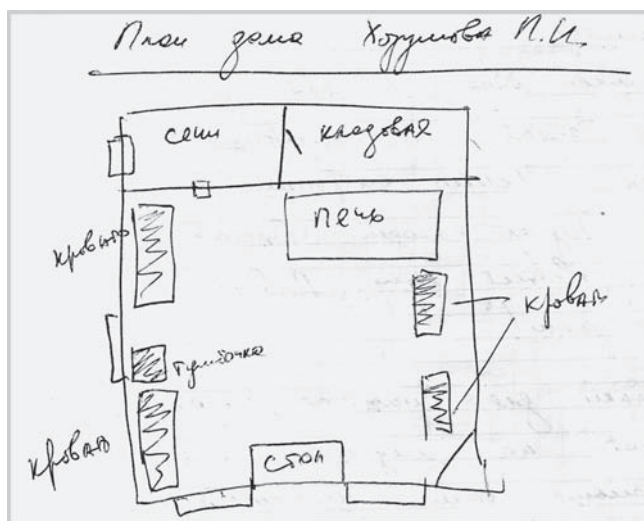 План дома Хорумова П.И.
сени
кладовая
печь
кровать
кровать
тумбочка
кровать
стол